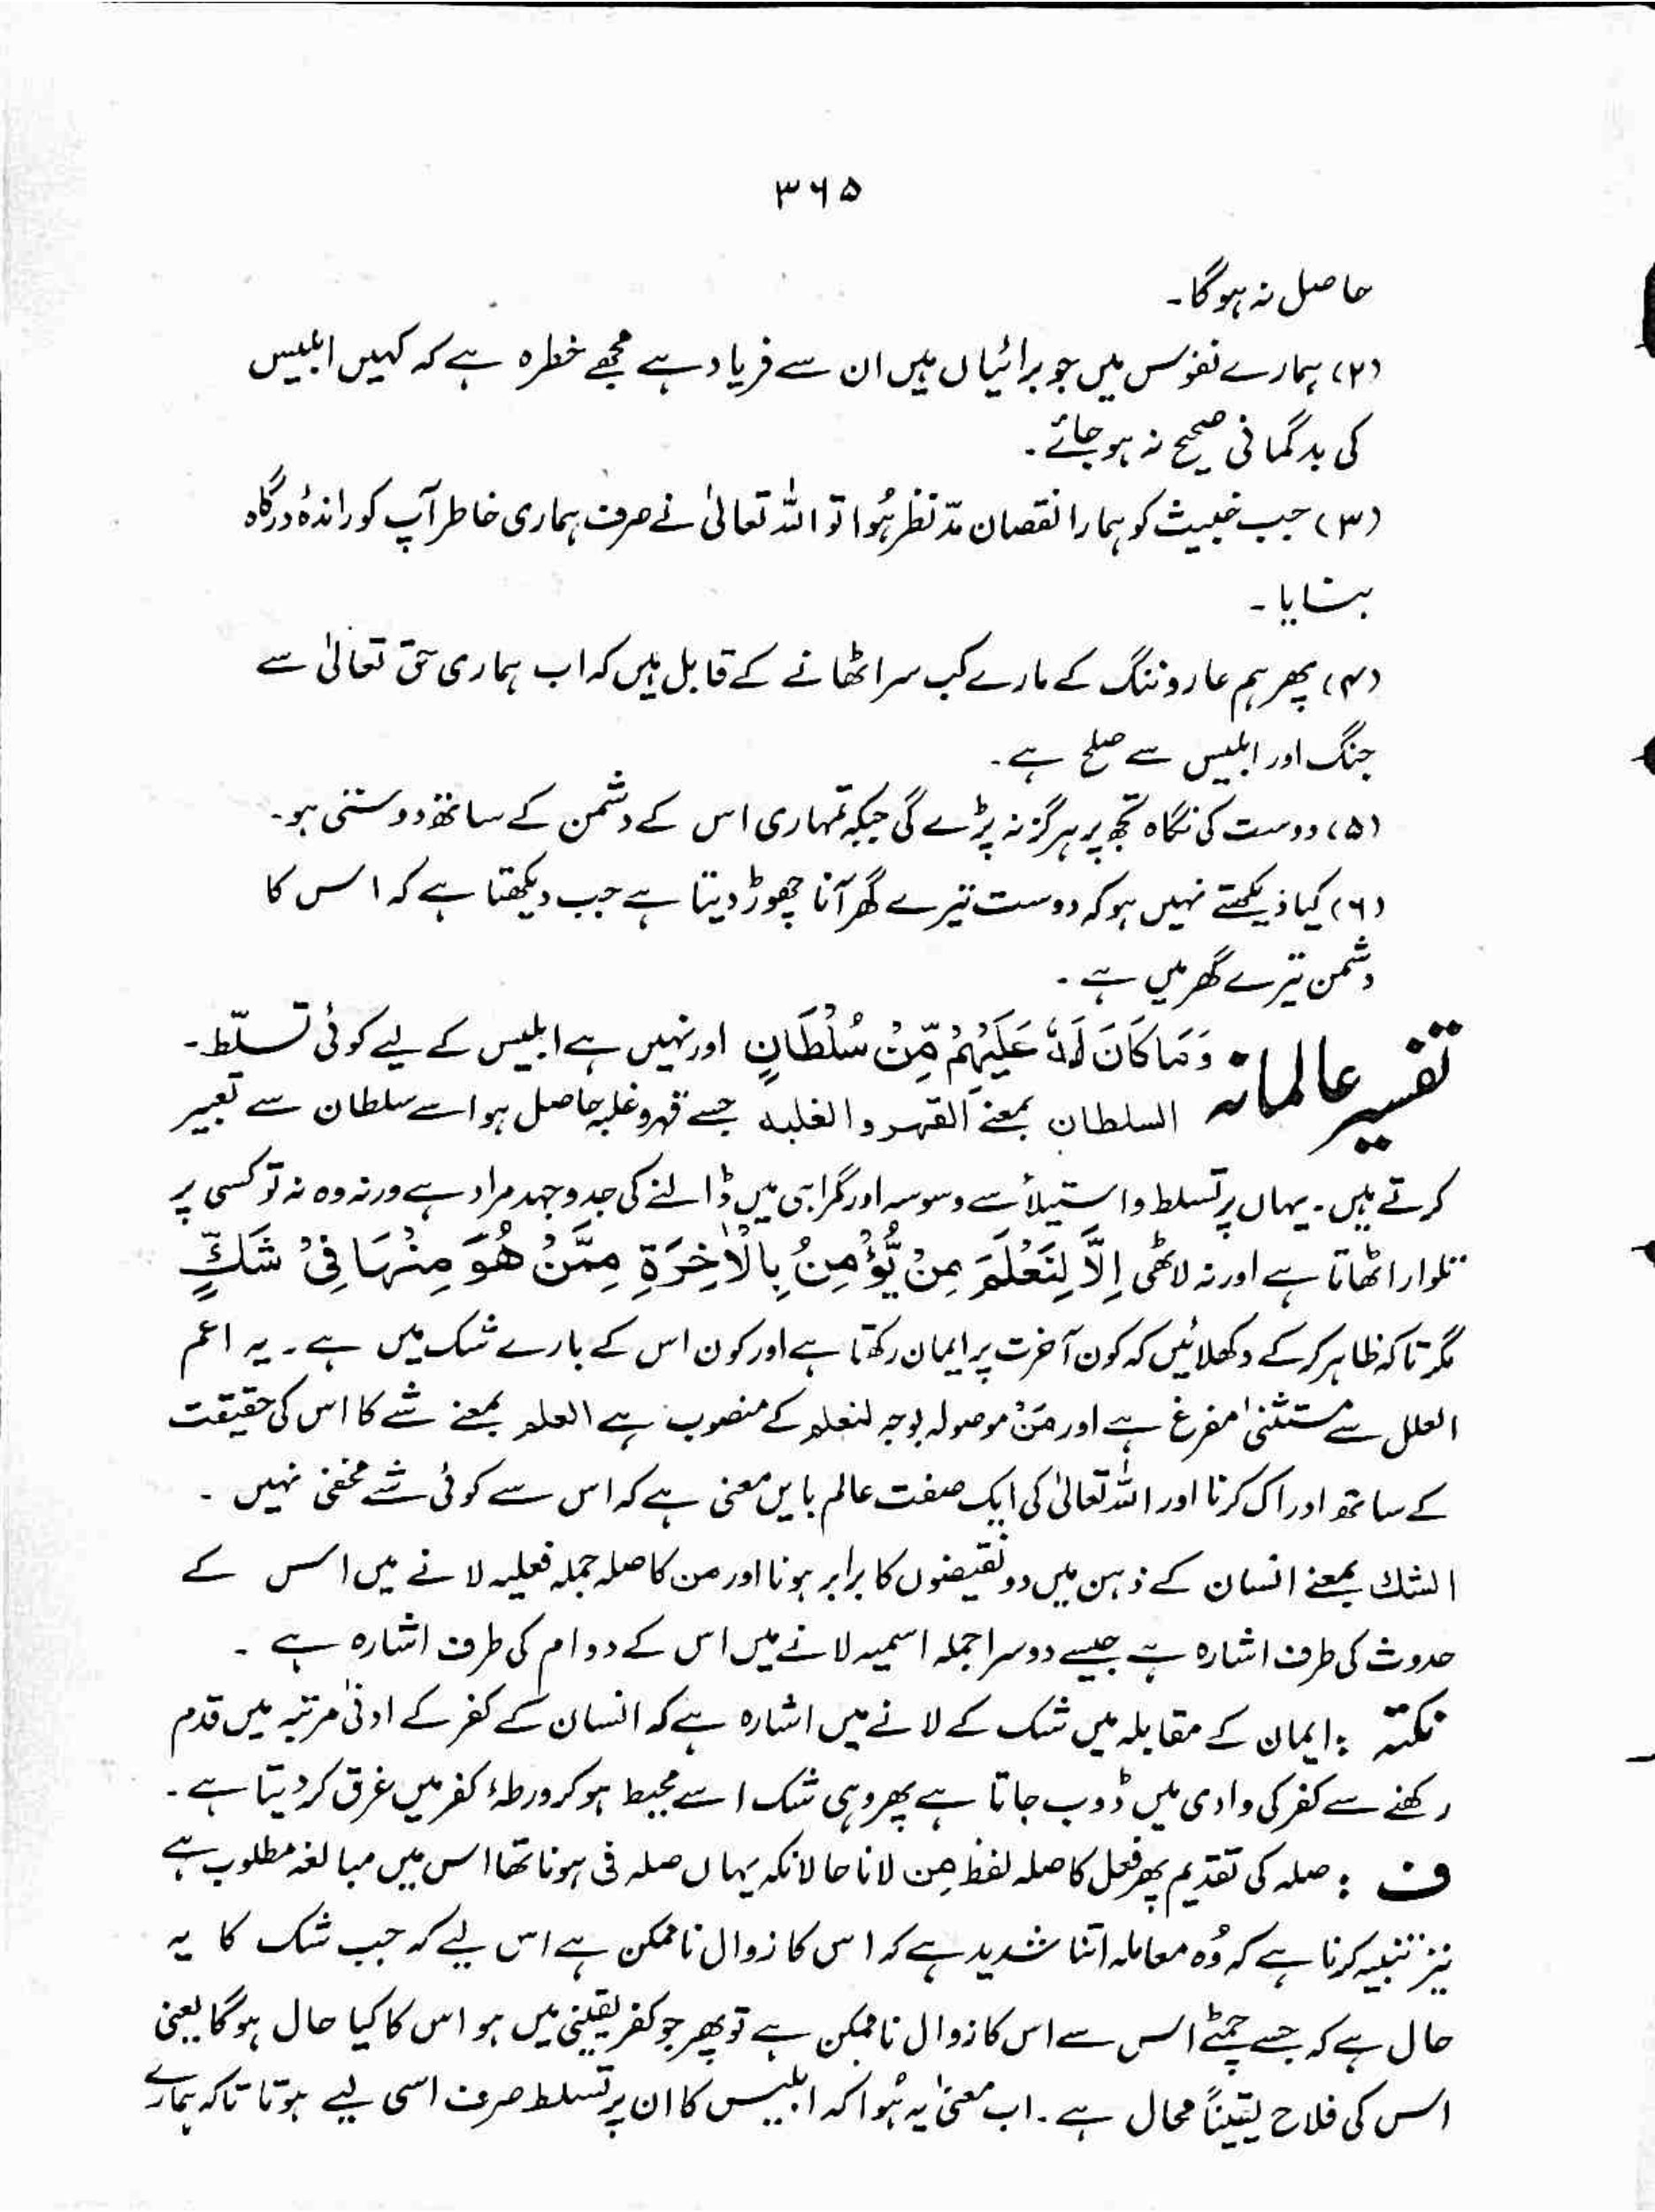 ۳۶۵
حاصل نہ ہوگا۔
(۲) ہمارے نفوس میں جو برائیاں ہیں ان سے فریاد ہے مجھے خطرہ ہے کہ کہیں ابلیس
کی بدگمانی صحیح نہ ہو جائے۔
(۳) جب خبیث کو ہمارا نقصان مدّ نظر ہُوا تو اللہ تعالیٰ نے صرف ہماری خاطر آپ کو راندۂ درگاہ
بنایا۔
(۴) پھر ہم عار و ننگ کے مارے کب سر اٹھانے کے قابل ہیں کہ اب ہماری حق تعالیٰ سے
جنگ اور ابلیس سے صلح ہے۔
(۵) دوست کی نگاہ تجھ پر ہرگز نہ پڑے گی جبکہ تمہاری اس کے دشمن کے ساتھ دوستی ہو۔
(۶) کیا دیکھتے نہیں ہو کہ دوست تیرے گھر آنا چھوڑ دیتا ہے جب دیکھتا ہے کہ اس کا
دشمن تیرے گھر میں ہے۔
تفسیر عالمانہ وَمَا کَانَ لَہٗ عَلَیْہِمْ مِّنْ سُلْطَانٍ اور نہیں ہے ابلیس کے لیے کوئی تسلّط۔
السلطان بمعنے القہر و الغلبہ جسے قہر و غلبہ حاصل ہو اسے سلطان سے تعبیر
کرتے ہیں۔ یہاں پر تسلط و استیلأ سے وسوسہ اور گمراہی میں ڈالنے کی جدوجہد مراد ہے ورنہ وہ نہ تو کسی پر
تلوار اٹھاتا ہے اور نہ لاٹھی اِلَّا لِنَعْلَمَ مِنْ یُّؤْمِنُ بِالْاٰخِرَۃِ مِمَّنْ ھُوَ مِنْہَا فِیْ شَکٍّ
مگر تاکہ ظاہر کر کے دکھلائیں کہ کون آخرت پر ایمان رکھتا ہے اور کون اس کے بارے شک میں ہے۔ یہ اعم
العلل سے مستثنیٰ مفرغ ہے اور مَنْ موصولہ بوجہ لنعلم کے منصوب ہے العلم بمعنے شے کا اس کی حقیقت
کے ساتھ ادراک کرنا اور اللہ تعالیٰ کی ایک صفت عالم بایں معنی ہے کہ اس سے کوئی شے مخفی نہیں۔
الشک بمعنے انسان کے ذہن میں دو نقیضوں کا برابر ہونا اور من کا صلہ جملہ فعلیہ لانے میں اس کے
حدوث کی طرف اشارہ ہے جیسے دوسرا جملہ اسمیہ لانے میں اس کے دوام کی طرف اشارہ ہے۔
نکتہ : ایمان کے مقابلہ میں شک کے لانے میں اشارہ ہے کہ انسان کے کفر کے ادنیٰ مرتبہ میں قدم
رکھنے سے کفر کی وادی میں ڈوب جاتا ہے پھر وہی شک اسے محیط ہو کر ورطۂ کفر میں غرق کر دیتا ہے۔
ف : صلہ کی تقدیم پھر فعل کا صلہ لفظ مِن لانا حالانکہ یہاں صلہ فی ہونا تھا اس میں مبالغہ مطلوب ہے
نیز تنبیہ کرنا ہے کہ وُہ معاملہ اتنا شدید ہے کہ اس کا زوال ناممکن ہے اس لیے کہ جب شک کا یہ
حال ہے کہ جسے چمٹے اس سے اس کا زوال ناممکن ہے تو پھر جو کفر یقینی میں ہو اس کا کیا حال ہوگا یعنی
اس کی فلاح یقیناً محال ہے۔ اب معنیٰ یہ ہُوا کہ ابلیس کا ان پر تسلط صرف اسی لیے ہوتا تاکہ ہمارے